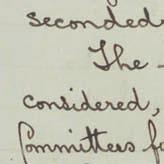 seconded
The
considered,
Committees